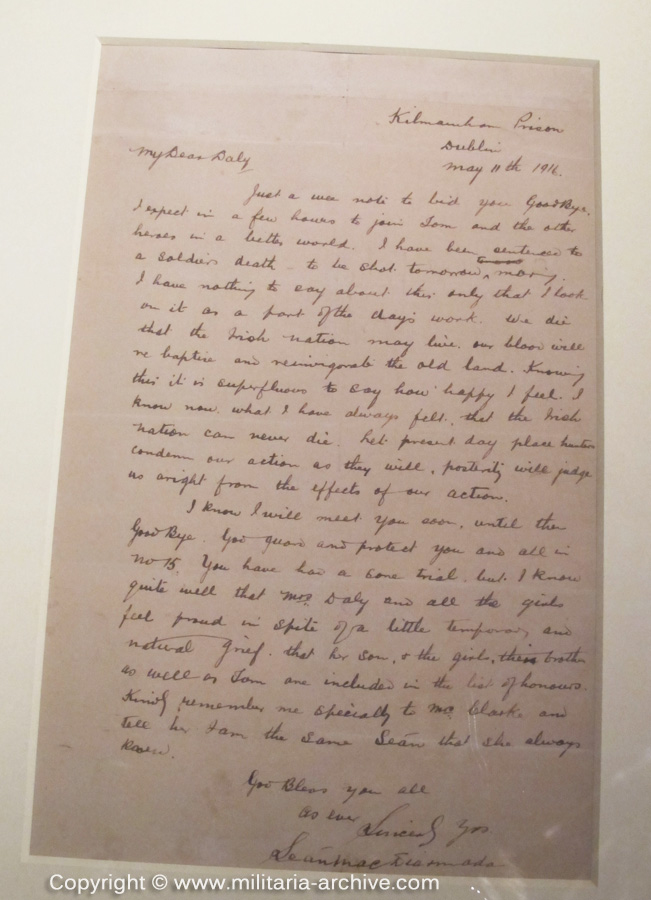 Kilmainham Prison
Dublin
May 11th 1916.
My Dear Daly
Just a wee note to bid you Good Bye.
I expect in a few hours to join Tom and the other
heroes in a better world. I have been sentenced to
a soldiers death – to be shot tomorrow morng.
I have nothing to say about this only that I look
on it as a part of the day's work. We die
that the Irish nation may live. our blood will
re baptise and reinvigorate the old land. Knowing
this it is superfluous to say how happy I feel. I
know now what I have always felt, that the Irish
nation can never die. Let present day place hunters
condemn our action as they will, posterity will judge
us aright from the effects of our action.
I know I will meet you soon, until then
Good Bye. God guard and protect you and all in
No 15. You have had a sore trial, but I know
quite well that Mrs. Daly and all the girls
feel proud in spite of a little temporary and
natural grief, that her son, & the girls, their brother
as well as Tom are included in the list of honours.
Kindly remember me specially to Mrs. Clarke and
tell her I am the same Seán that she always
knew.
God Bless you all
as ever
Sincerely Yrs
Seán Mac Diarmada
Copyright © www.militaria-archive.com